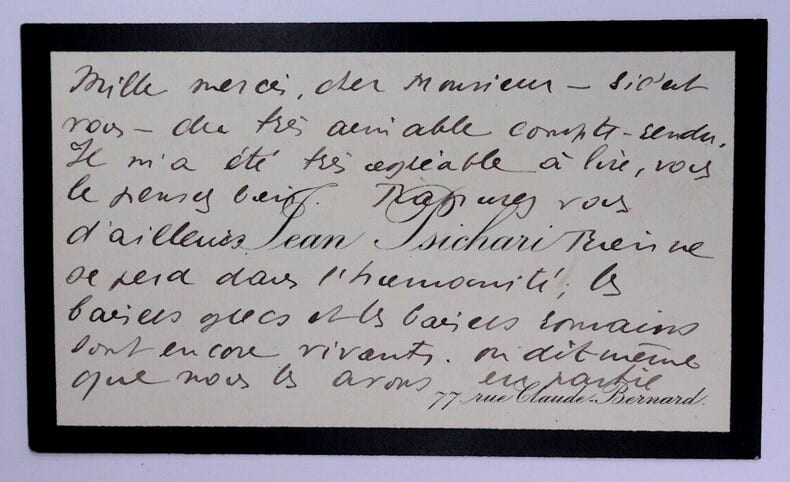 Mille mercis, cher Monsieur – si c'est
vous – du très aimable compte-rendu.
Il m'a été très agréable à lire, vous
le pensez bien. Rassurez vous
d'ailleurs Jean Psichari Rien ne
se perd dans l'humanité; les
baisers grecs et les baisers romains
sont encore vivants. on dit même
que nous les avons en partie
77 rue Claude-Bernard.